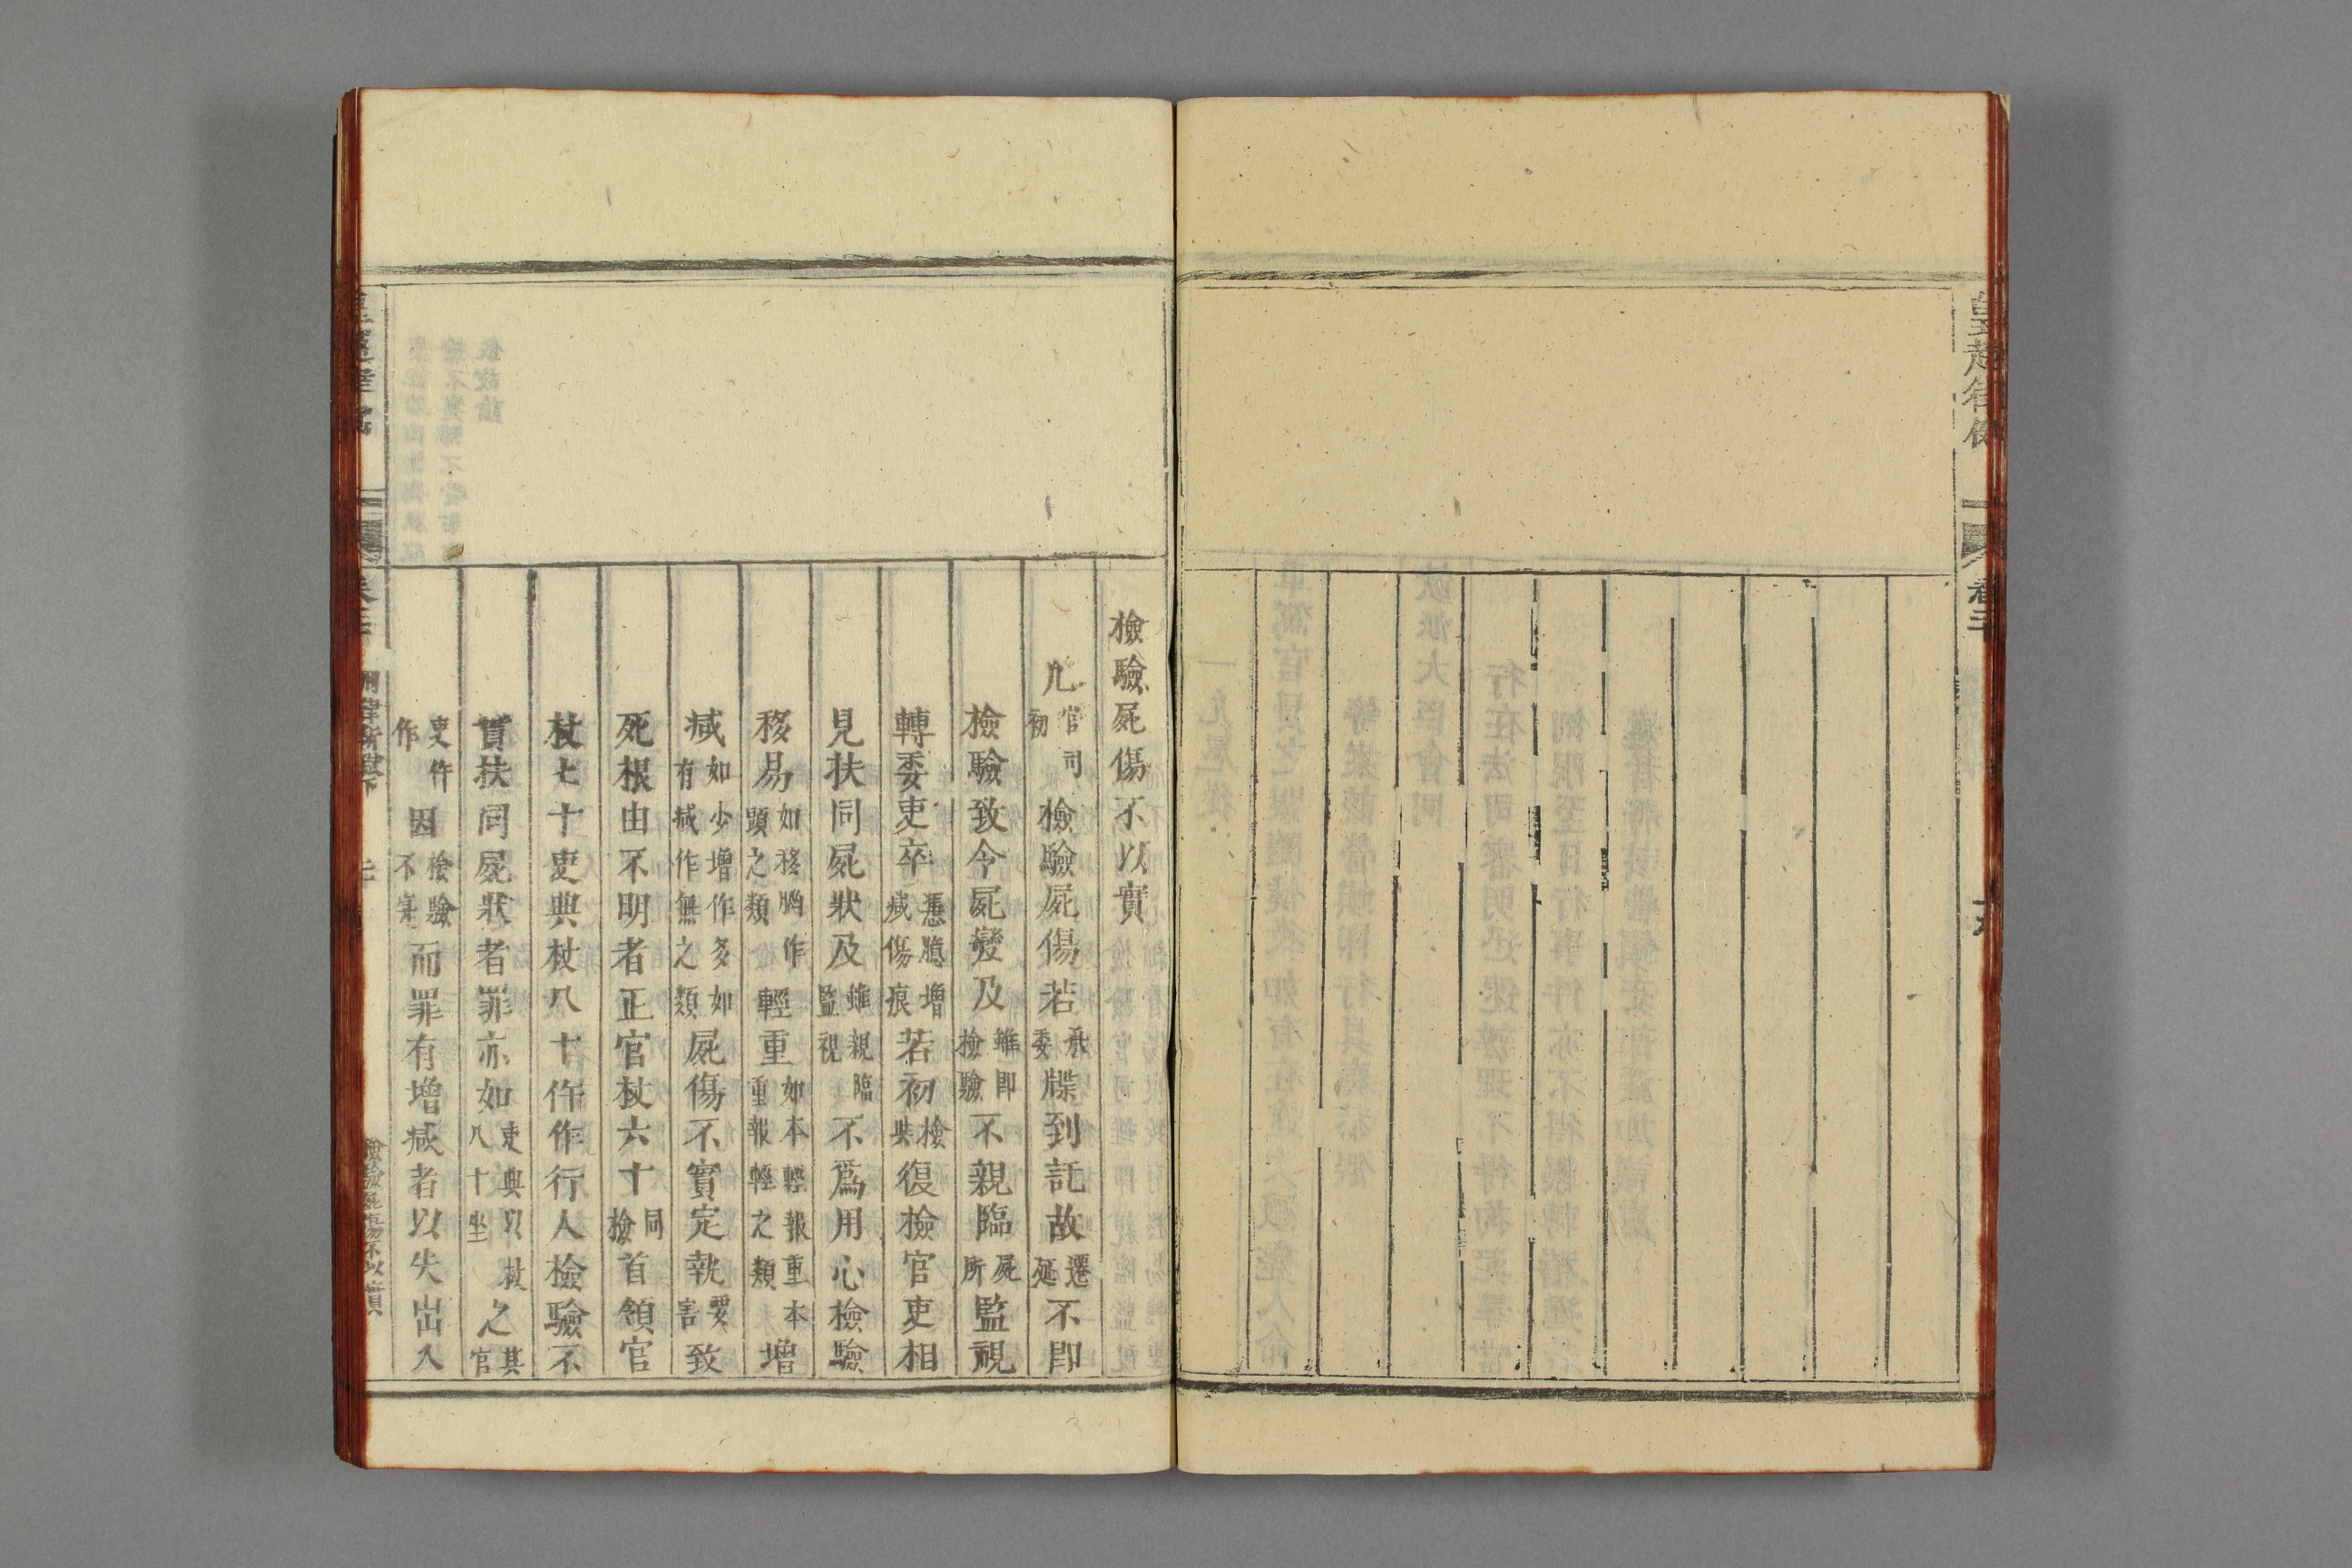 皇越律例
檢驗屍傷不以實
凡官司初檢驗屍傷若承委牒到託故遷延不即
檢驗致令屍變及雖即檢驗不親臨屍所監視
轉委吏卒憑臆增減傷痕若初檢與復檢官吏相
見扶同屍狀及雖親臨監視不爲用心檢驗
移易如移腦作頭之類輕重如本輕報重本重報輕之類增
減如少增作多如有減作無之類屍傷不實定執要害致
死根由不明者正官杖六十同檢首領官
杖七十吏典杖八十仵作行人檢驗不
實扶同屍狀者罪亦如吏典以杖八十坐之其官
吏仵作因檢驗不實而罪有增減者以失出入
檢驗屍傷不以實